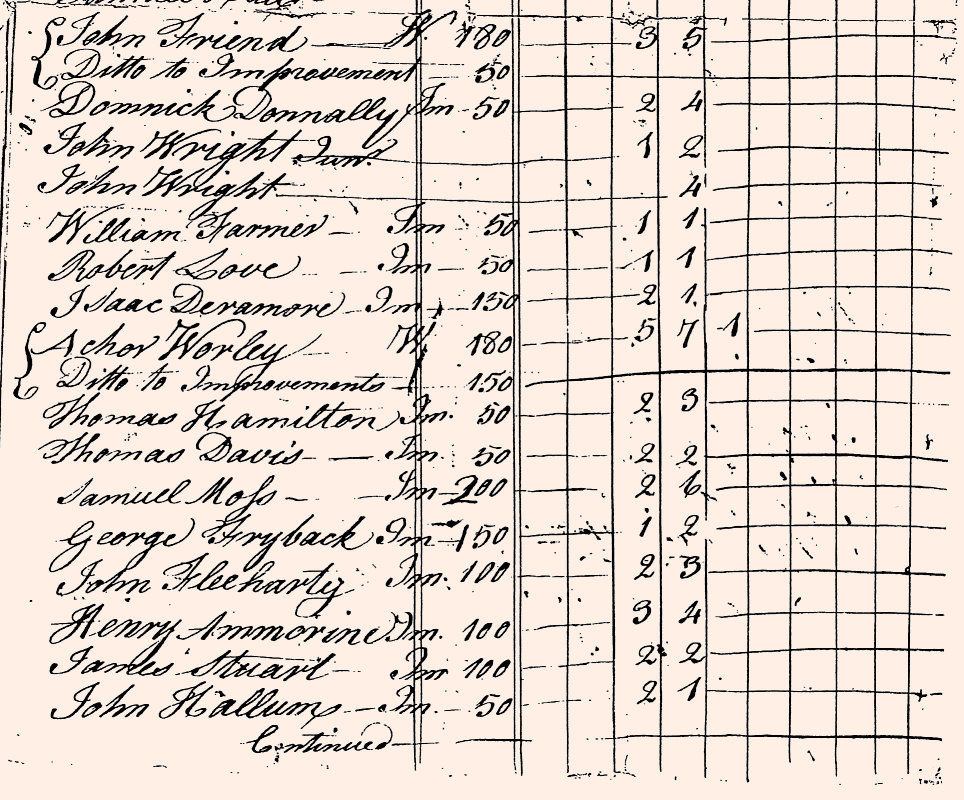 John Friend W. 180 3 5
Ditto to Improvement 50
Domnick Donnally Im 50 2 4
John Wright Junr 1 2
John Wright 4
William Farmer Im 50 1 1
Robert Love Im 50 1 1
Isaac Deramore Im 150 2 1
Achor Worley W 180 5 7 1
Ditto to Improvements 150
Thomas Hamilton Im. 50 2 3
Thomas Davis Im. 50 2 2
Samuel Moſs Im 200 2 6
George Fryback Im 150 1 2
John Fleeharty Im. 100 2 3
Henry Ammorine Im. 100 3 4
James Stuart Im 100 2 2
John Hallum Im. 50 2 1
Continued